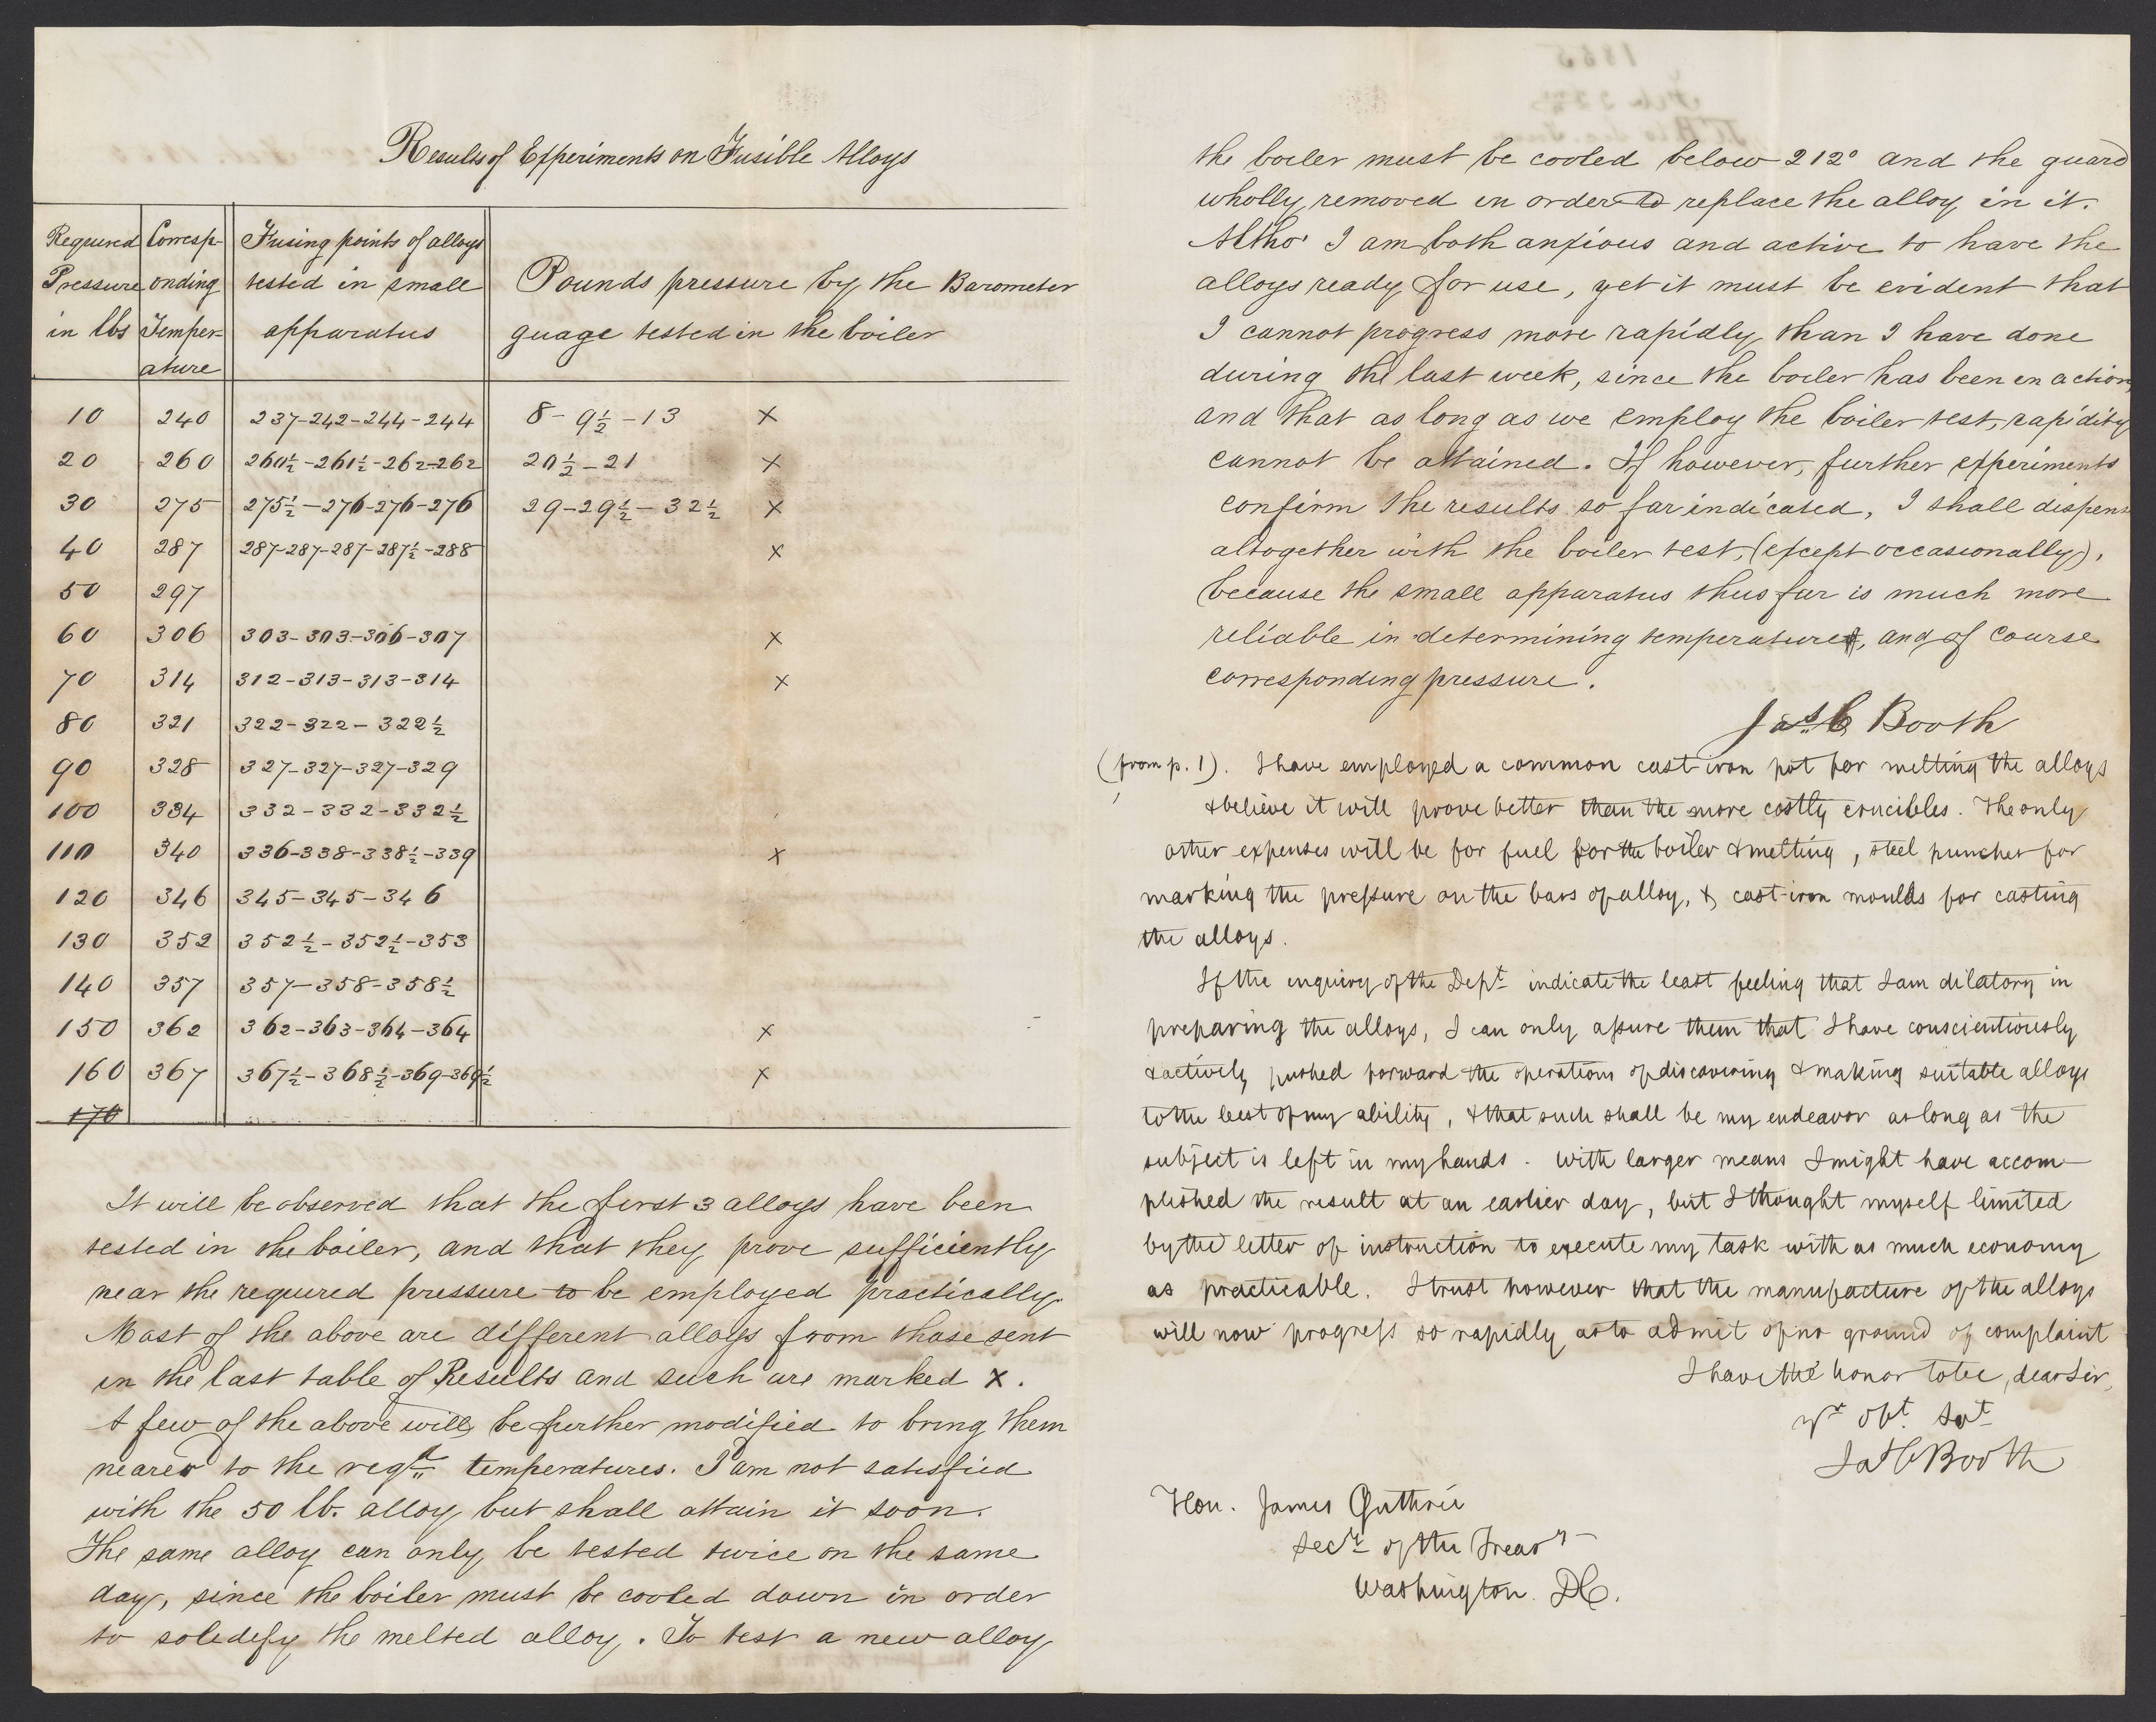 Results of Experiments on Fusible Alloys
Required Pressure in lbs | Corresp-onding Temper-ature | Fusing points of alloys tested in small apparatus | Pounds pressure by the Barometer guage tested in the boiler
10 240 237-242-244-244 8-9½-13 x
20 260 260½-261½-262-262 20½-21 x
30 275 275½-276-276-276 29-29½-32½ x
40 287 287-287-287-287½-288 x
50 297
60 306 303-303-306-307 x
70 314 312-313-313-314 x
80 321 322-322-322½
90 328 327-327-327-329
100 334 332-332-332½
110 340 336-338-338½-339 x
120 346 345-345-346
130 352 352½-352½-353
140 357 357-358-358½
150 362 362-363-364-364 x
160 367 367½-368½-369-369½ x
170
It will be observed that the first 3 alloys have been
tested in the boiler, and that they prove sufficiently
near the required pressure to be employed practically.
Most of the above are different alloys from those sent
in the last table of Results and such are marked x.
A few of the above will be further modified to bring them
nearer to the reqd temperatures. I am not satisfied
with the 50 lb. alloy but shall attain it soon.
The same alloy can only be tested twice on the same
day, since the boiler must be cooled down in order
to soledefy the melted alloy. To test a new alloy
the boiler must be cooled below 212° and the guard
wholly removed in order to replace the alloy in it.
Altho' I am both anxious and active to have the
alloys ready for use, yet it must be evident that
I cannot progress more rapidly than I have done
during the last week, since the boiler has been in action,
and that as long as we employ the boiler test, rapidity
cannot be attained. If however, further experiments
confirm the results so far indicated, I shall dispens
altogether with the boiler test, (except occasionally),
because the small apparatus thus far is much more
reliable in determining temperature, and of course
corresponding pressure.
Jas. C Booth
(from p. 1). I have employed a common cast-iron pot for melting the alloys
& believe it will prove better than the more costly crucibles. The only
other expenses will be for fuel for the boiler & melting, steel punches for
marking the pressure on the bars of alloy, & cast-iron moulds for casting
the alloys.
If the enquiry of the Dept. indicate the least feeling that I am dilatory in
preparing the alloys, I can only assure them that I have conscientiously
& actively pushed forward the operations of discovering & making suitable alloys
to the best of my ability, & that such shall be my endeavor as long as the
subject is left in my hands. With larger means I might have accom-
plished the result at an earlier day, but I thought myself limited
by the letter of instruction to execute my task with as much economy
as practicable. I trust however that the manufacture of the alloys
will now progress so rapidly as to admit of no ground of complaint
I have the honor to be, dear Sir,
yr obt. Svt
Jas C Booth
Hon. James Guthrie
Secy of the Treasy
Washington. DC.